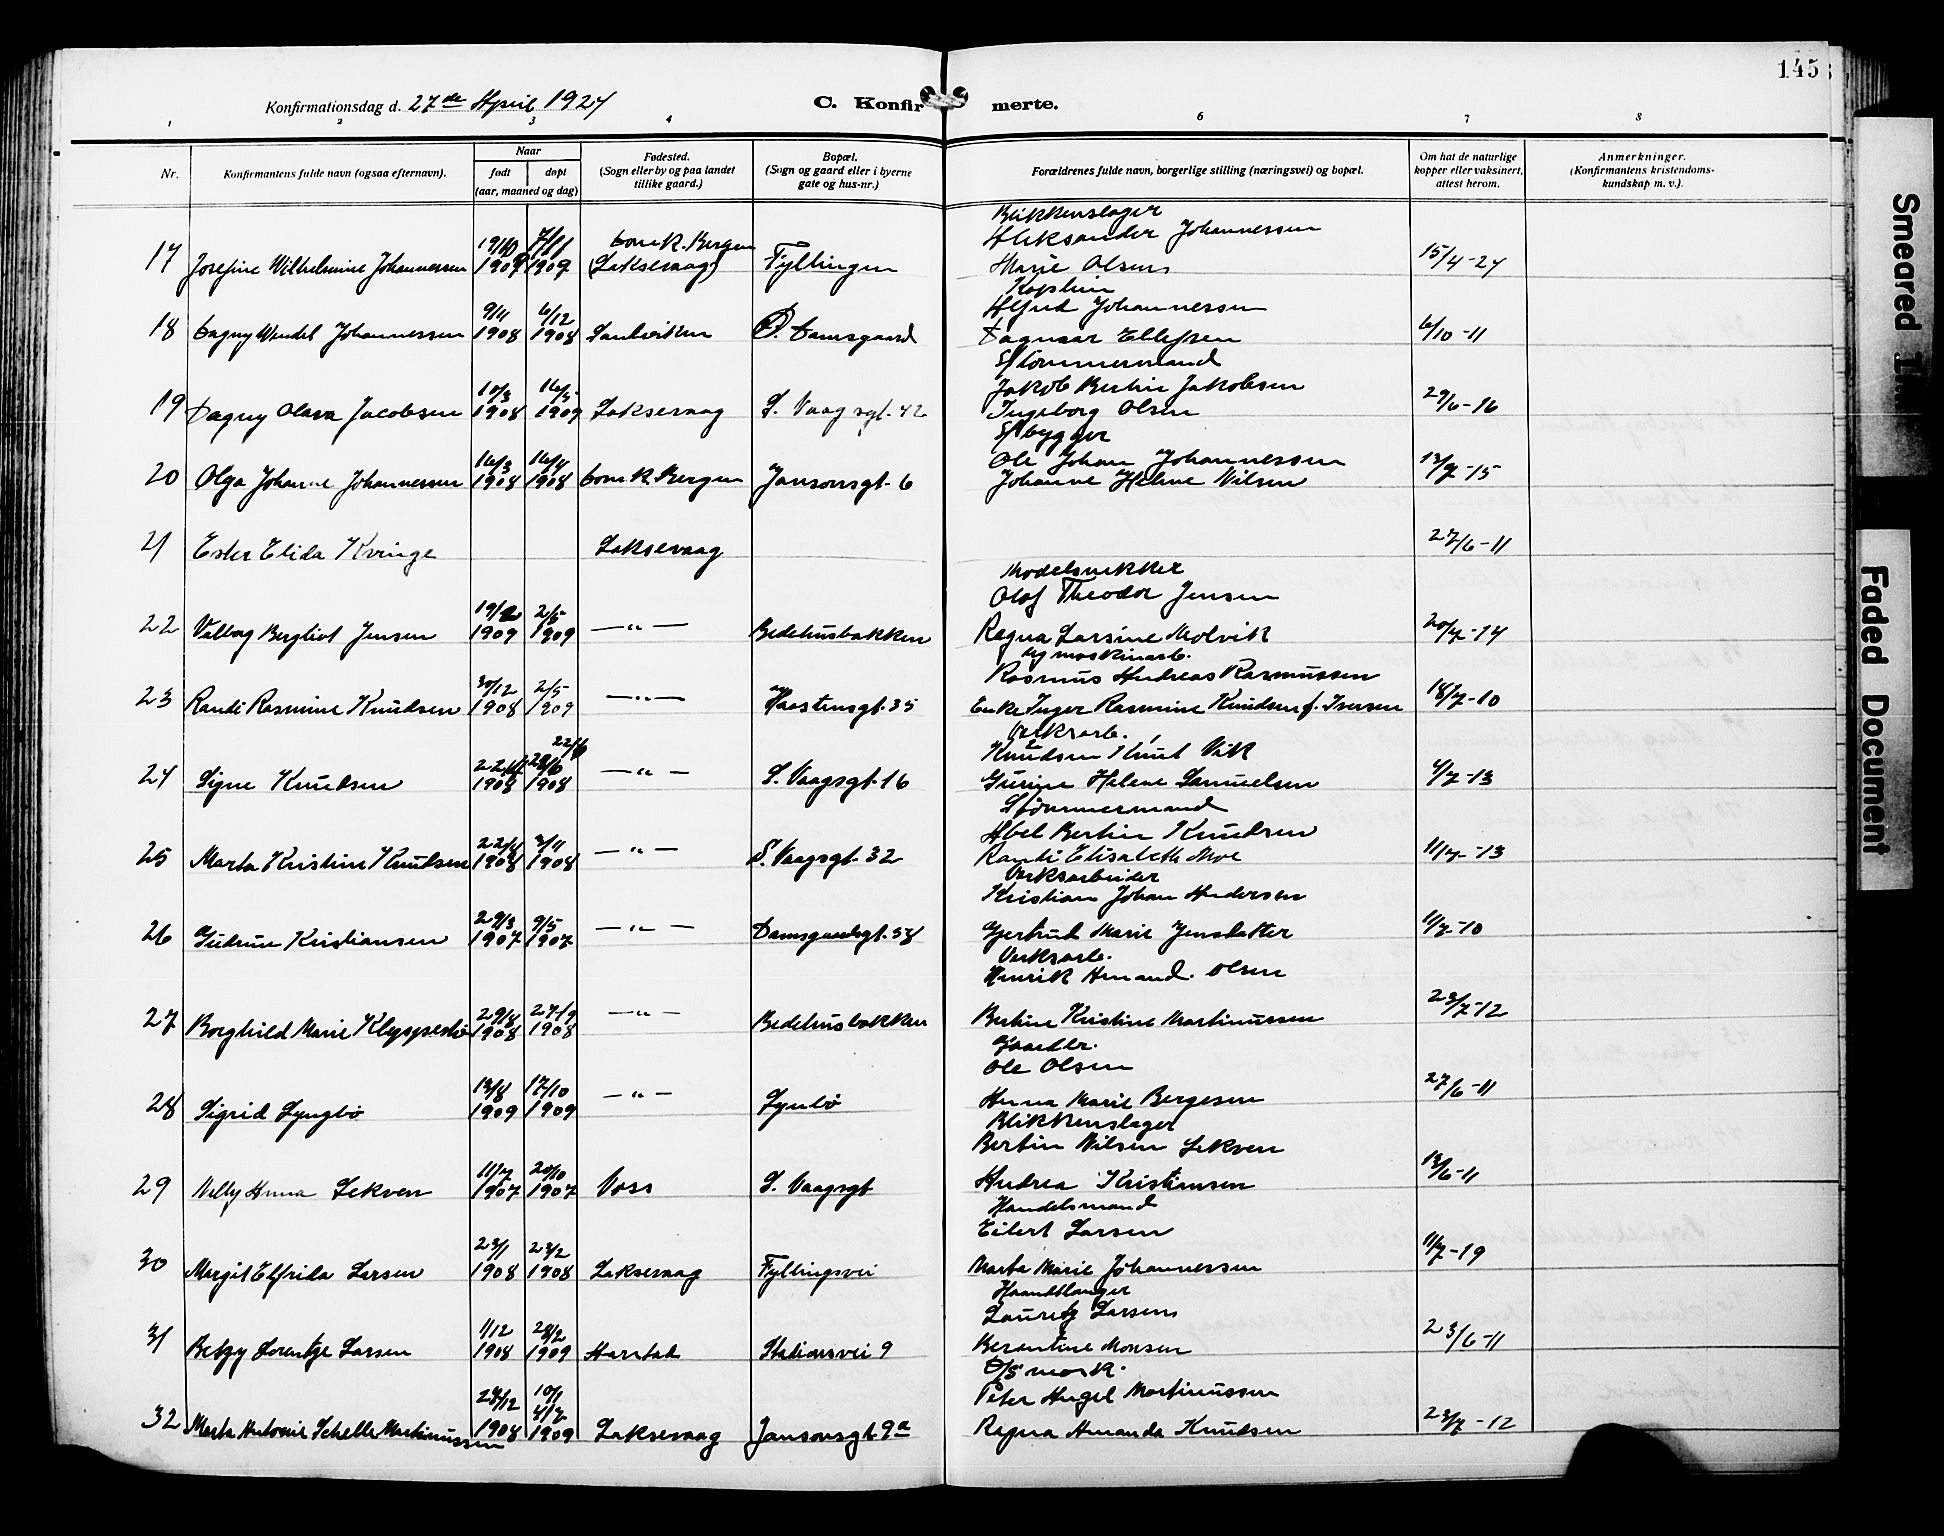 145
Konfirmationsdag d. 27de April 1924
C. Konfirmerte.
1 2 3 4 6 7 8
Nr.
Konfirmantens fulde navn (ogsaa efternavn).
Naar
født
døpt
(aar, maaned og dag)
Fødested.
(Sogn eller by og paa landet
tillike gaard.)
Bopæl.
(Sogn og gaard eller i byerne
gate og hus-nr.)
Forældrenes fulde navn, borgerlige stilling (næringsvei) og bopæl.
Om hat de naturlige
kopper eller vaksinert,
attest herom.
Anmerkninger.
(Konfirmantens kristendoms-
kundskap m. v.).
Blikkenslager
Aleksander Johannessen
17 Josefine Wilhelmine Johannessen 19/10 1909 7/11 1909 Domk. Bergen (Laksevaag) Fyllingen Marie Olsen 15/4-24
Alfred Johannessen
18 Dagny Wendel Johannessen 9/11 1908 6/12 1908 Sandviken Damsgaard Dagmar Ellefsen 6/10-11
S/tømmermand
Jakob Bertin Jakobsen
19 Dagny Olava Jacobsen 10/3 1908 16/5 1909 Laksevaag S. Vaagsgt. 42 Ingeborg Olsen 29/6-16
S/bygger
Ole Johan Johannessen
20 Olga Johanne Johannessen 16/3 1908 16/4 1908 Domk. Bergen Jansonsgt. 6 Johanne Helene Nilsen 13/7-15
21 Ester Elida Kvinge Laksevaag 27/6-11
Modelsnekker
Olaf Theodor Jensen
22 Valborg Bergliot Jensen 19/2 1909 2/5 1909 —"— Bedehusbakken Ragna Larsine Molvik 20/7-14
Rasmus Andreas Rasmussen
23 Randi Rasmine Knudsen 30/12 1908 2/5 1909 —"— Haastensgt. 35 Enke Inger Rasmine Knudsen f. Iversen 18/7-10
Verksarb.
Knudsen Knut Vik
24 Signe Knudsen 1908 22/6 1908 —"— S. Vaagsgt. 16 Gurine Helene Samuelsen 4/7-13
S/tømmermand
Abel Bertin Knudsen
25 Marta Kristine Knudsen 22/8 1908 3/11 1908 —"— S. Vaagsgt. 32 Randi Elisabeth Moe 11/7-13
Verksarbeider
Kristian Johan Andersen
26 Gudrun Kristiansen 29/3 1907 9/5 1907 —"— Damsgaardsgt. 58 Gjertrud Marie Jensdatter 11/7-10
Verksarb.
Henrik Amand. Olsen
27 Borghild Marie Kleppestø 29/8 1908 27/9 1908 —"— Bedehusbakken Bertine Kristine Martinussen 23/7-12
Gaardbr.
Ole Olsen
28 Sigrid Lyngbø 13/8 1909 17/10 1909 —"— Lynbø Anna Marie Bergesen 27/6-11
Blikkenslager
Bertin Nilsen Sekven
29 Nelly Anna Sekven 11/7 1907 20/10 1907 Voss S. Vaagsgt Andrea Kristiansen 13/6-11
Handelsmand
Eilert Larsen
30 Margit Elfrida Larsen 23/1 1908 23/2 1908 Laksevaag Fyllingsvei Marta Marie Johannessen 11/7-19
Haandtlanger
Lauritz Larsen
31 Betzy Lorentze Larsen 1/12 1908 28/2 1909 Harstad Stationsvei 9 Berentine Monsen 23/6-11
D/S mask.
Peter Angel Martinussen
32 Marta Antonie Schelle Martinussen 28/12 1908 10/1 4/7 1909 Laksevaag Jansonsgt 9a Ragna Amanda Knudsen 23/7-12
Smeared
Faded Document